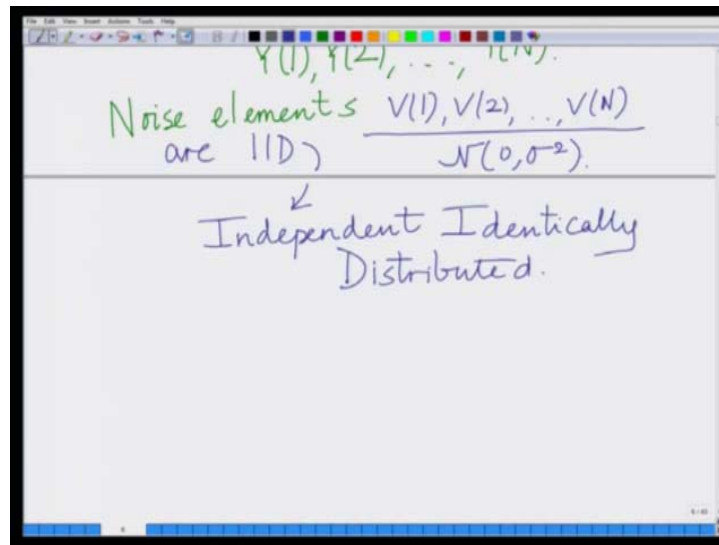 File Edit View Insert Actions Tools Help
Y(1), Y(2), ..., Y(N).
Noise elements V(1), V(2), .., V(N)
are IID N(0, σ²).
Independent Identically
Distributed.
6